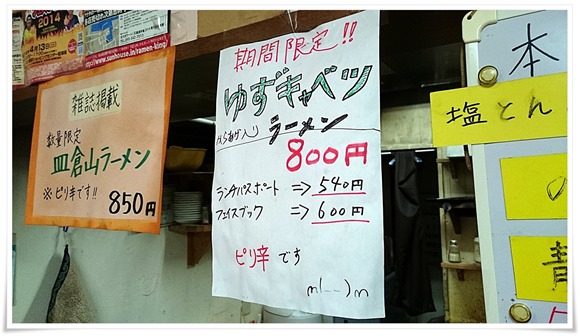 2014
4月13日(日)
http://www.sunhouse.in/ramen-king/
雑誌掲載
数量限定
皿倉山ラーメン
※ピリ辛です!!
850円
期間限定!!
ゆずキャベツ
からあげ入り ラーメン
800円
ランチパスポート => 540円
フェイスブック => 600円
ピリ辛です
m(__)m
本
塩とん
の
青